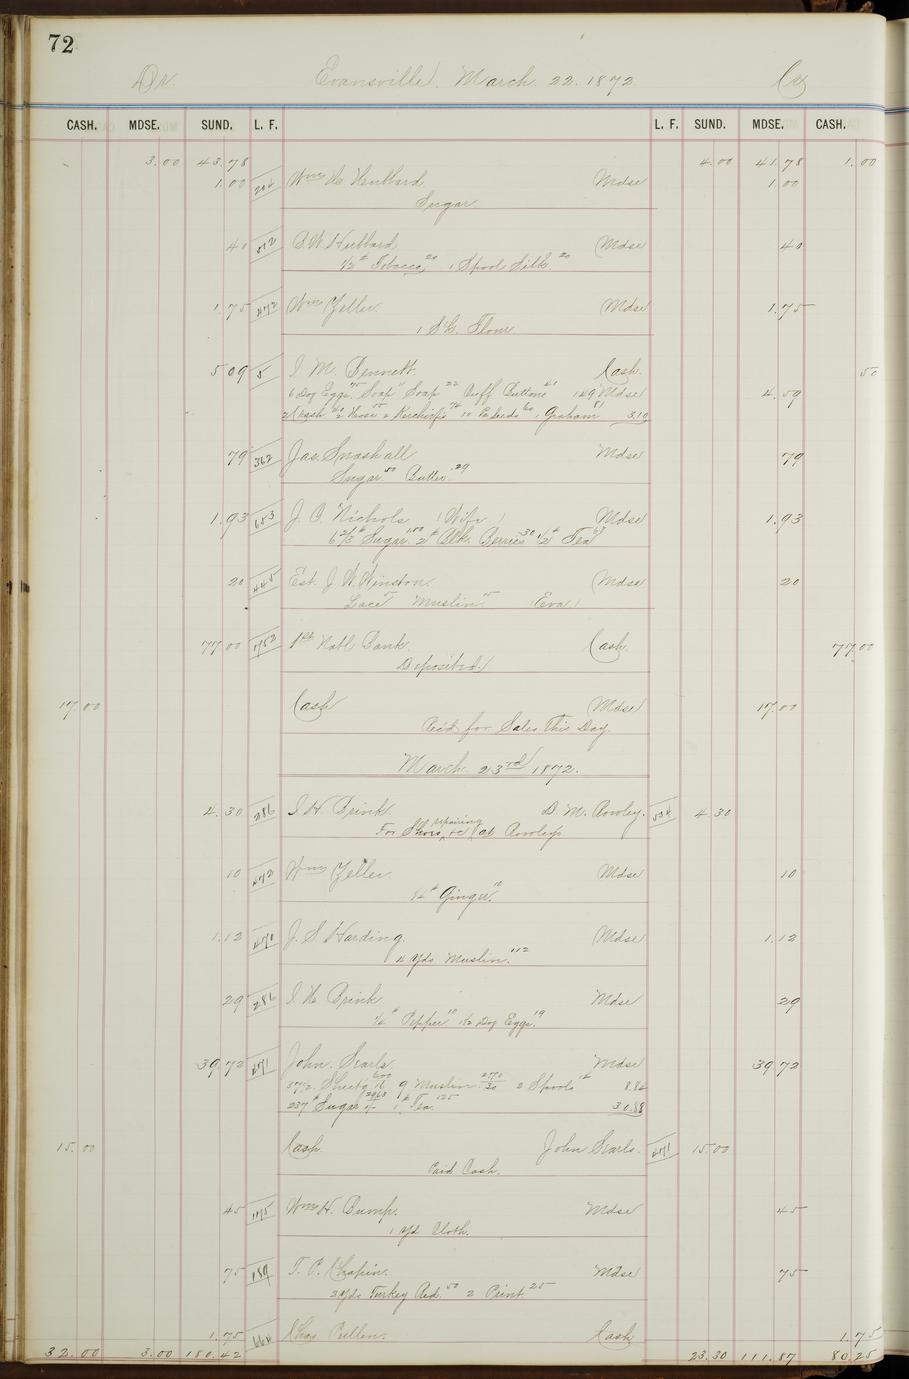 72
Dr. Evansville, March. 22. 1872 Cr
CASH. MDSE. SUND. L. F. L. F. SUND. MDSE. CASH.
3.00 43.78 4.00 41.78 1.00
1.00 Wm H. Hubbard Mdse 1.00
Sugar
40 B. W. Hubbard Mdse 40
1/2# Tobacco 20 1 Spool Silk 20
1.75 472 Wm Zeller Mdse 1.75
1 Sk. Flour
5 09 5 I. M. Bennett Cash. 50
6 Doz Eggs 75 Soap 11 Soap 22 Cuff Buttons 41 149 Mdse 4.59
2 Crash 40 2 Hose 2 Kerchiefs 1 Graham 3.10
79 362 Jas. Snashall Mdse 79
Sugar 50 Butter 29
1.93 653 J. C. Nichols (Wife) Mdse 1.93
6 2/3# Sugar 1.00 2# Blk. Berries 30 1/2# Tea 63
20 445 Est. J. W. Winston Mdse 20
Lace 5 Muslin 15 (Eva)
77 00 1st Natl Bank Cash 77.00
Deposited.
17.00 Cash Mdse 17.00
Rec'd for Sales This Day.
March 23rd 1872.
4.30 286 I. H. Brink. D. M. Rowley. 534 4.30
repairing
For Shoes, &c (at Rowleys
10 472 Wm Zeller Mdse 10
1/4# Ginger 10
1.12 470 J. S. Harding. Mdse 1.12
4 Yds Muslin. 112
29 286 I H. Brink Mdse 29
1/4# Pepper 10 1 1/2 Doz Eggs. 19
39.72 471 John. Searls. Mdse 39.72
37 1/2 Sheetg 16 600 9 Muslin 30 270 2 Spools 14 8.84
237# Sugar 2963 1# Tea 125 30.88
15.00 Cash John Searls. 471 15.00
Paid Cash.
45 Wm H. Bump. Mdse 45
1 Yd Cloth.
75 189 T. P. Chapin. Mdse 75
2 Yds Turkey Red. 50 2 Print 25
1.75 664 Chas Pullen. Cash 1.75
32.00 3.00 180.42 23.30 111.87 80.25